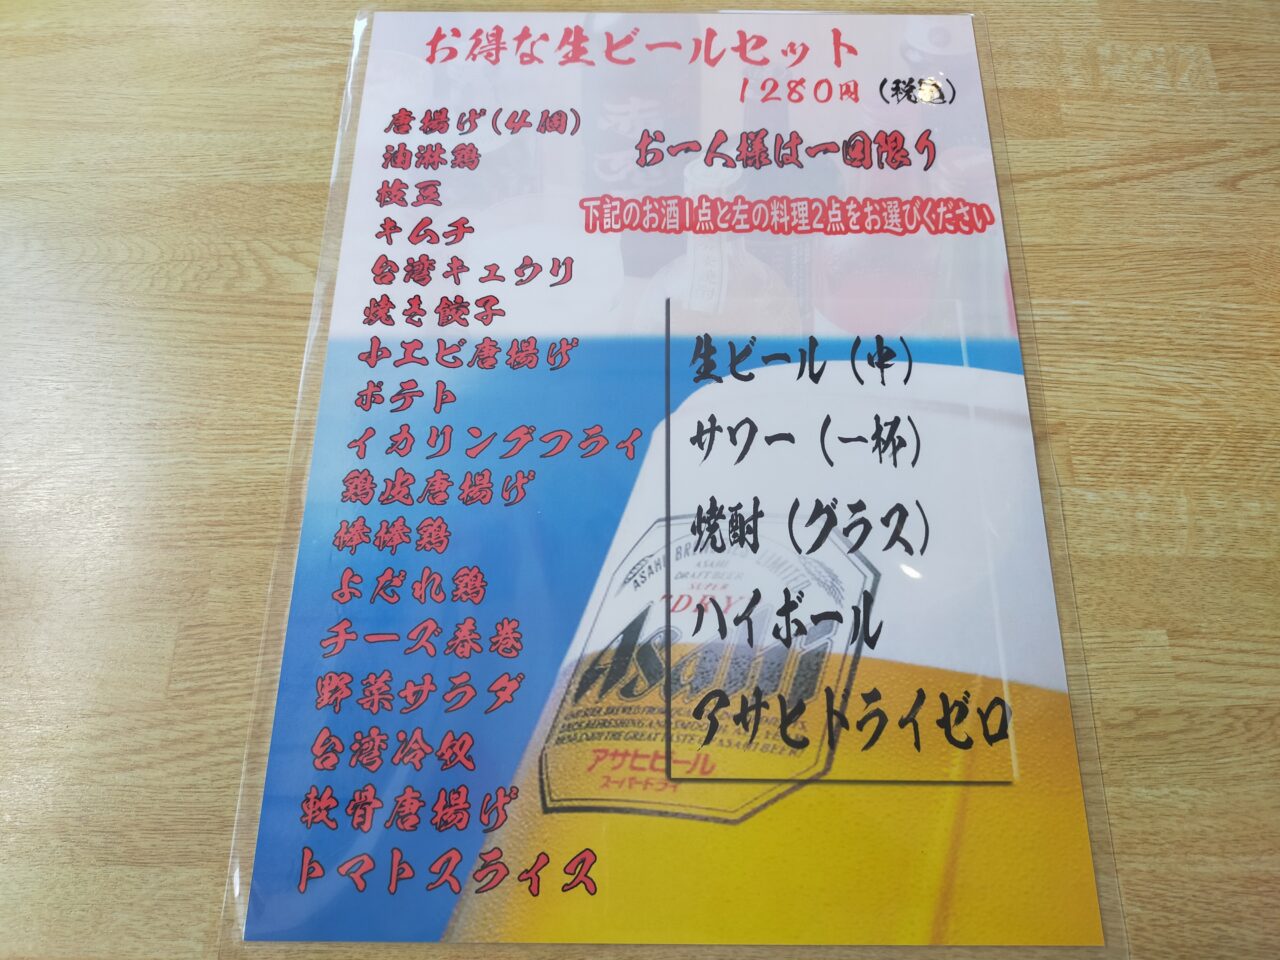 お得な生ビールセット
1280円(税込)
お一人様は一回限り
下記のお酒1点と左の料理2点をお選びください
唐揚げ(4個)
油淋鶏
枝豆
キムチ
台湾キュウリ
焼き餃子
小エビ唐揚げ
ポテト
イカリングフライ
鶏皮唐揚げ
棒棒鶏
よだれ鶏
チーズ春巻
野菜サラダ
台湾冷奴
軟骨唐揚げ
トマトスライス
生ビール(中)
サワー(一杯)
焼酎(グラス)
ハイボール
アサヒドライゼロ
ASAHI
DRAFT BEER
SUPER
"DRY"
Asahi
アサヒビール
スーパードライ